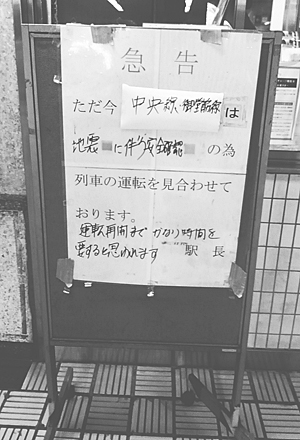 急告
ただ今 中央線・御堂筋線は
地震に伴う安全確認の為
列車の運転を見合わせて
おります。
運転再開まで かなり時間を
要すると思われます 駅長